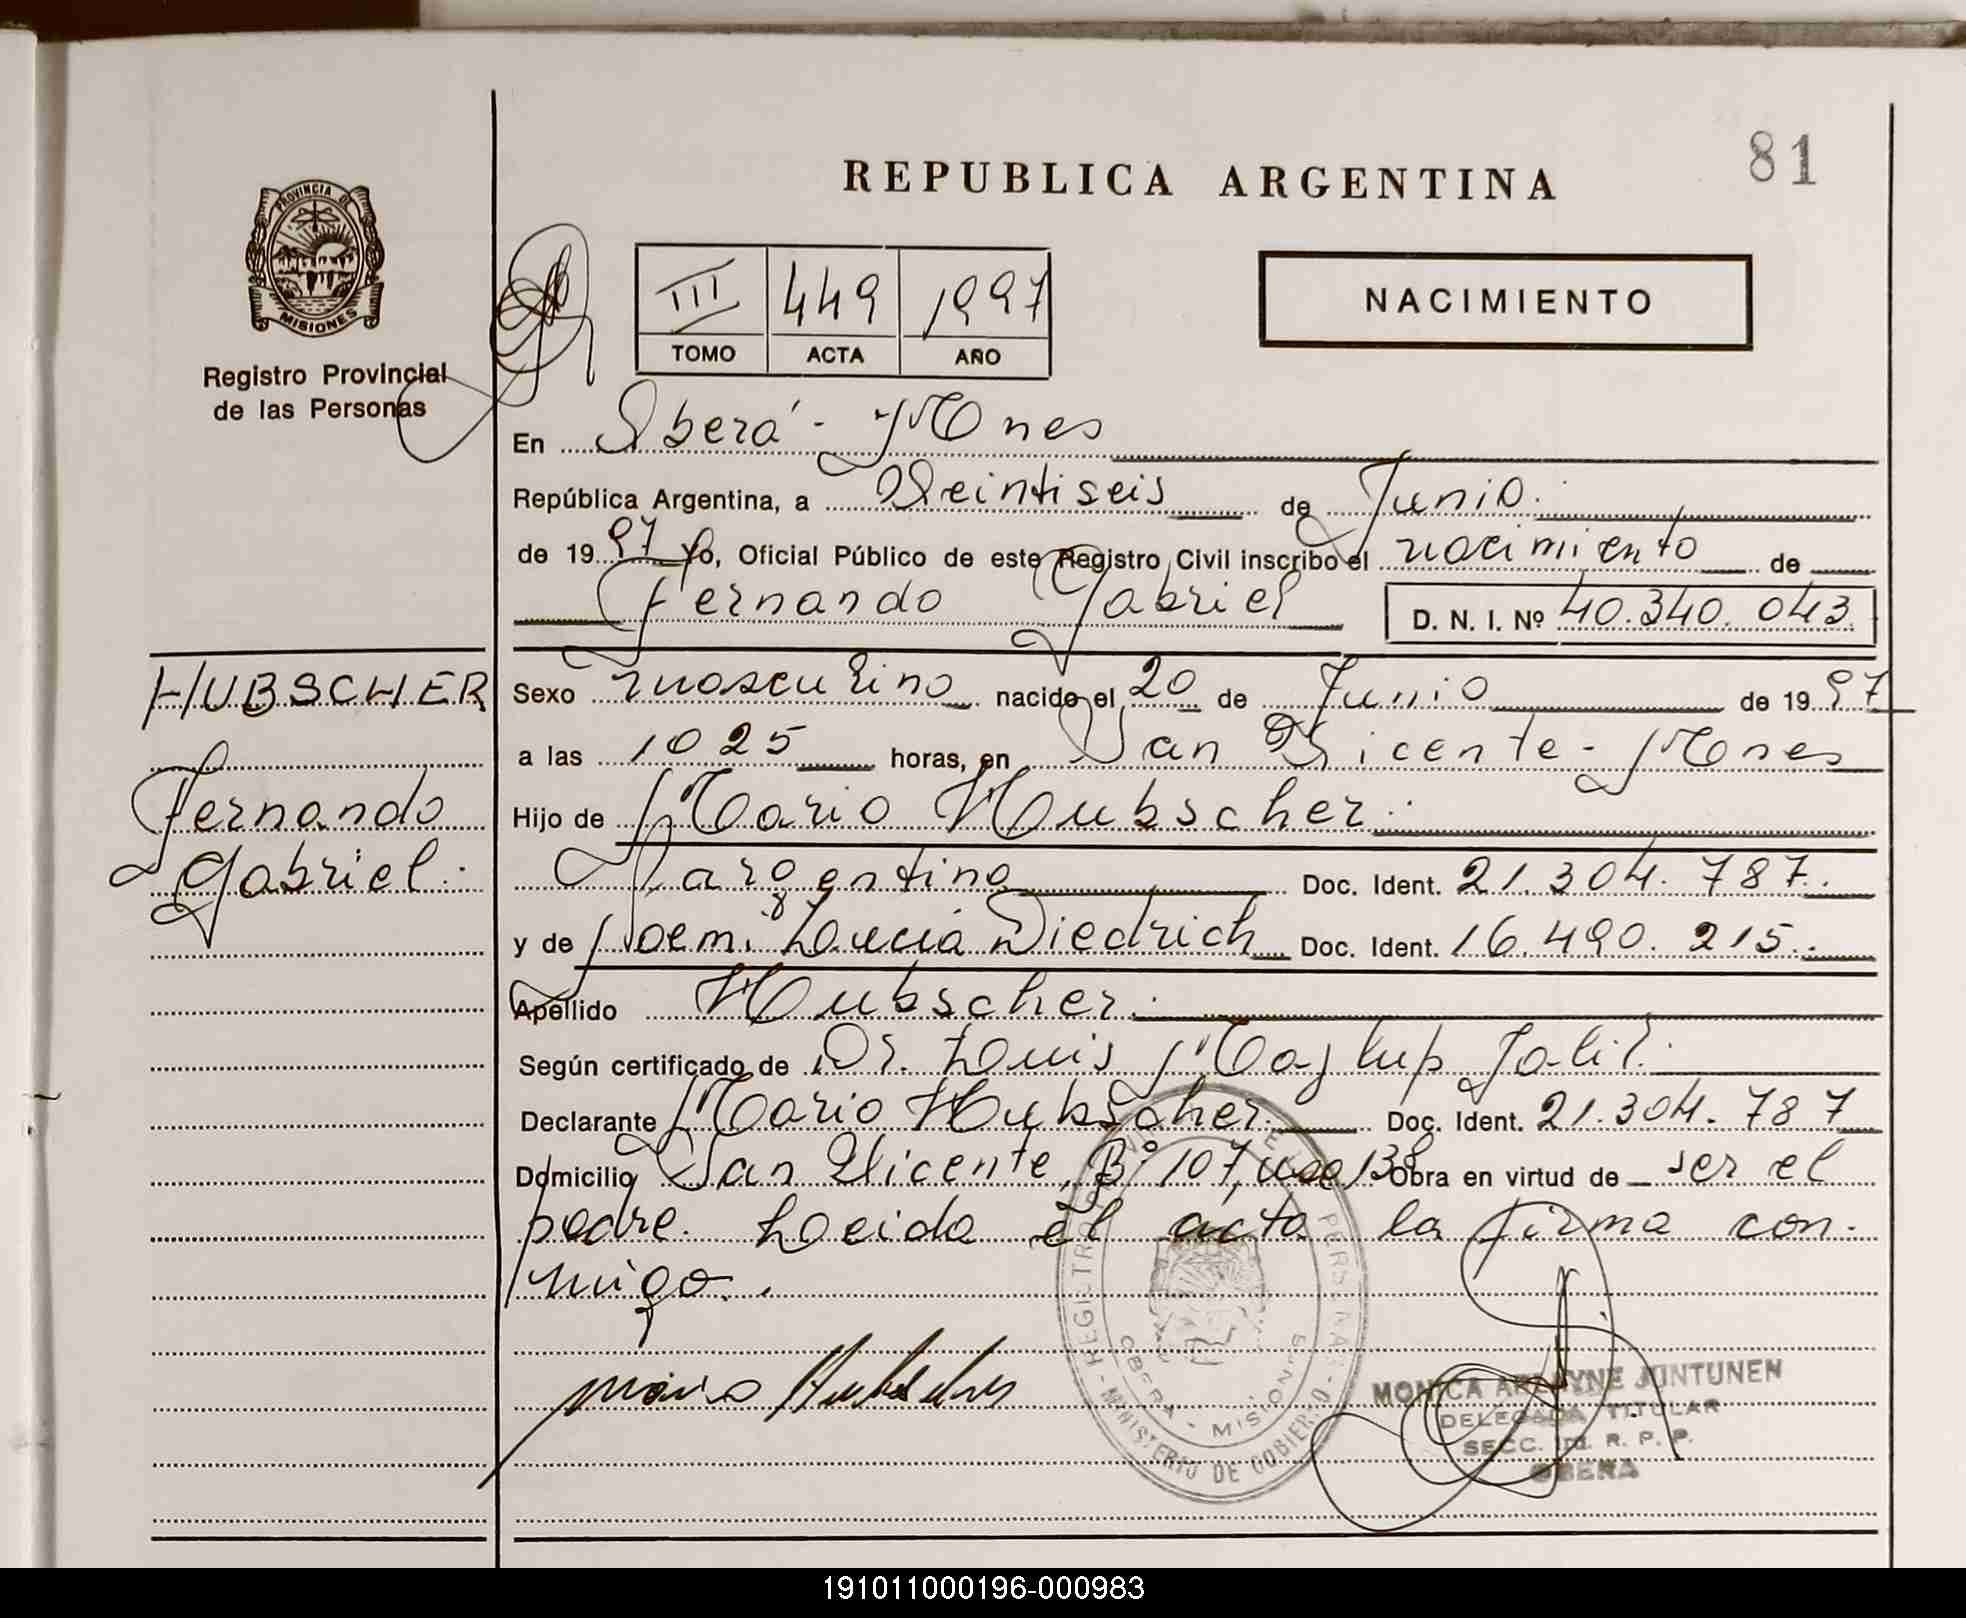 REPUBLICA ARGENTINA
81
PROVINCIA DE
MISIONES
Registro Provincial
de las Personas
III 449 1997
TOMO ACTA AÑO
NACIMIENTO
En Oberá - Mnes
República Argentina, a Veintiseis de Junio
de 1997 Yo, Oficial Público de este Registro Civil inscribo el nacimiento de
Fernando Gabriel D. N. I. Nº 40.340.043
HUBSCHER
Fernando
Gabriel
Sexo masculino nacido el 20 de Junio de 1997
a las 10 25 horas, en San Vicente - Mnes
Hijo de Mario Hubscher
argentino Doc. Ident. 21.304.787
y de Noemi Lucia Diedrich Doc. Ident. 16.490.215
Apellido Hubscher
Según certificado de Dr. Luis Jalil
Declarante Mario Hubscher Doc. Ident. 21.304.787
Domicilio San Vicente, Bº 107, 138 Obra en virtud de ser el
padre. Leida el acta la firma con-
migo.
Mario Hubscher
REGISTRO PERSONAS
MINISTERIO DE GOBIERNO
OBERA - MISIONES
MONICA JUNTUNEN
DELEGADA TITULAR
SECC. R. P. P.
OBERA
191011000196-000983